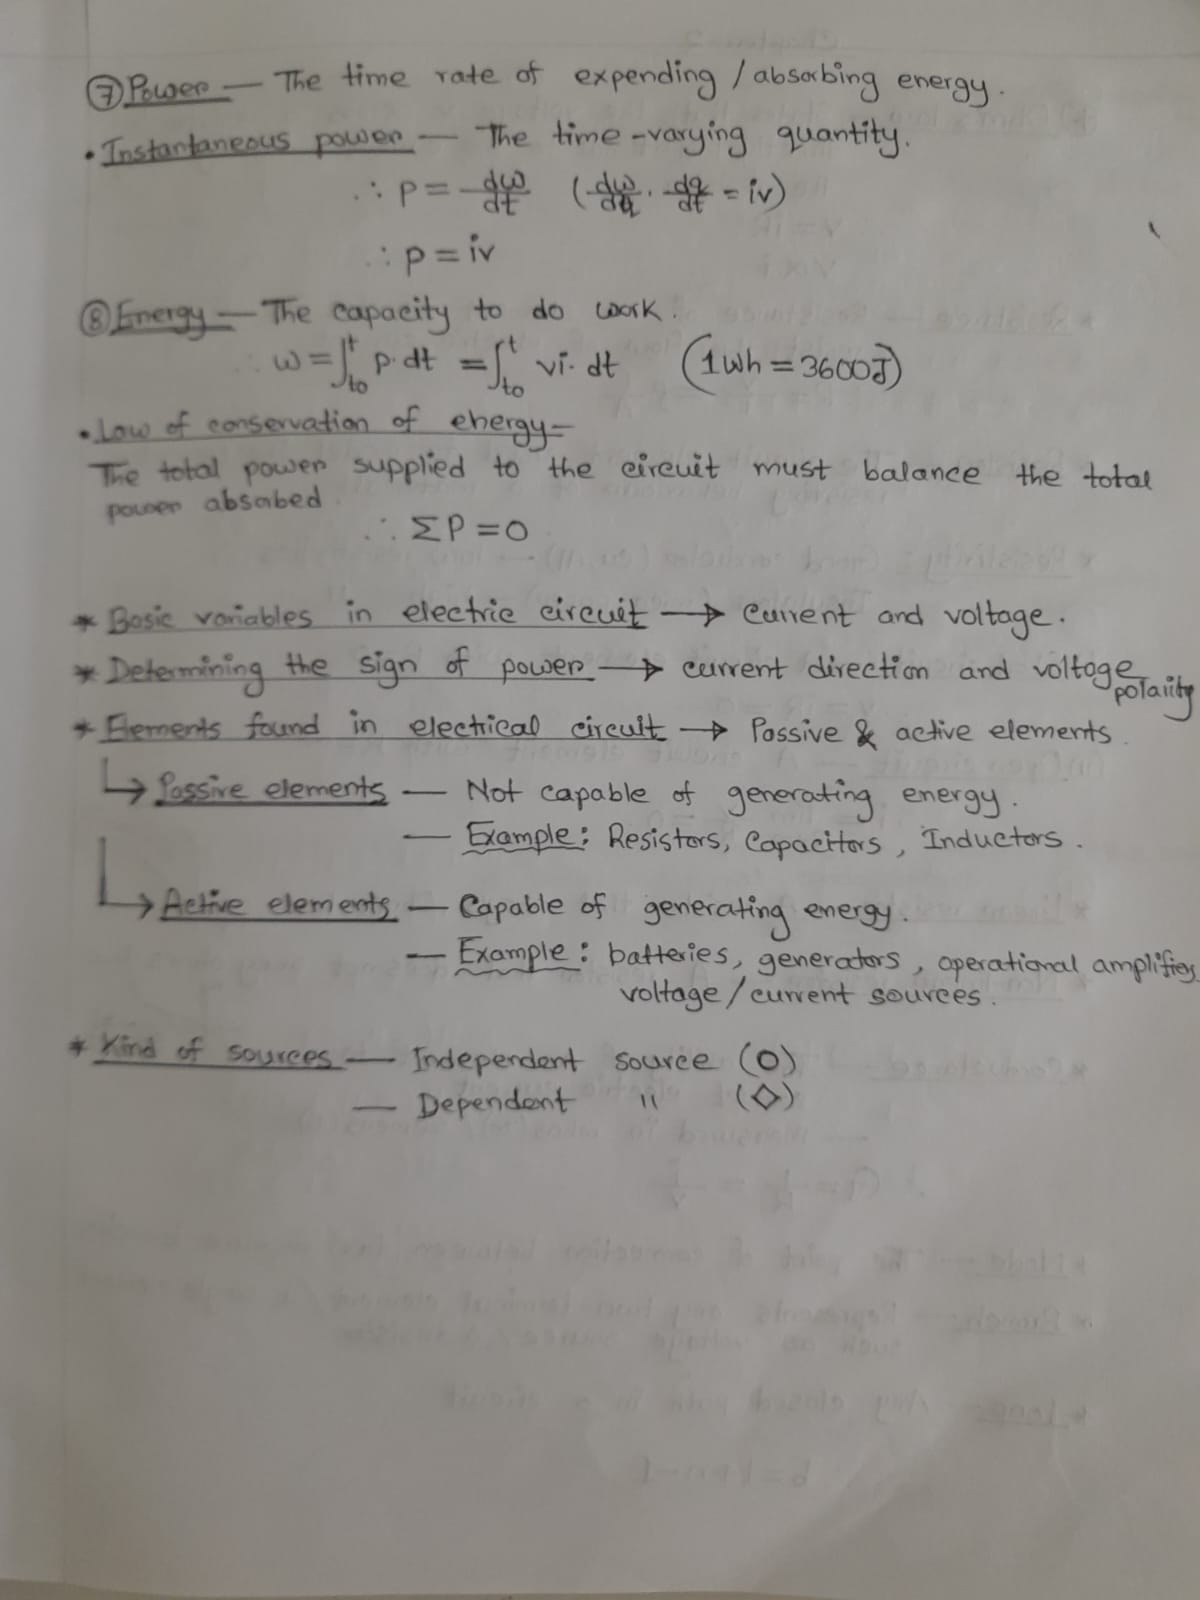 ⑦ Power — The time rate of expending / absorbing energy.
• Instantaneous power — The time-varying quantity.
∴ p = dw/dt (dw/dq · dq/dt = iv)
∴ p = iv
⑧ Energy — The capacity to do work.
∴ w = ∫ₜₒᵗ p·dt = ∫ₜₒᵗ vi·dt (1Wh = 3600J)
• Law of conservation of energy—
The total power supplied to the circuit must balance the total
power absorbed
∴ ΣP = 0
* Basic variables in electric circuit → Current and voltage.
* Determining the sign of power → current direction and voltage
polarity
* Elements found in electrical circuit → Passive & active elements.
↳ Passive elements — Not capable of generating energy.
— Example: Resistors, Capacitors, Inductors.
↳ Active elements — Capable of generating energy.
— Example: batteries, generators, operational amplifies,
voltage/current sources.
* Kind of sources — Independent source (○)
— Dependent " (◇)